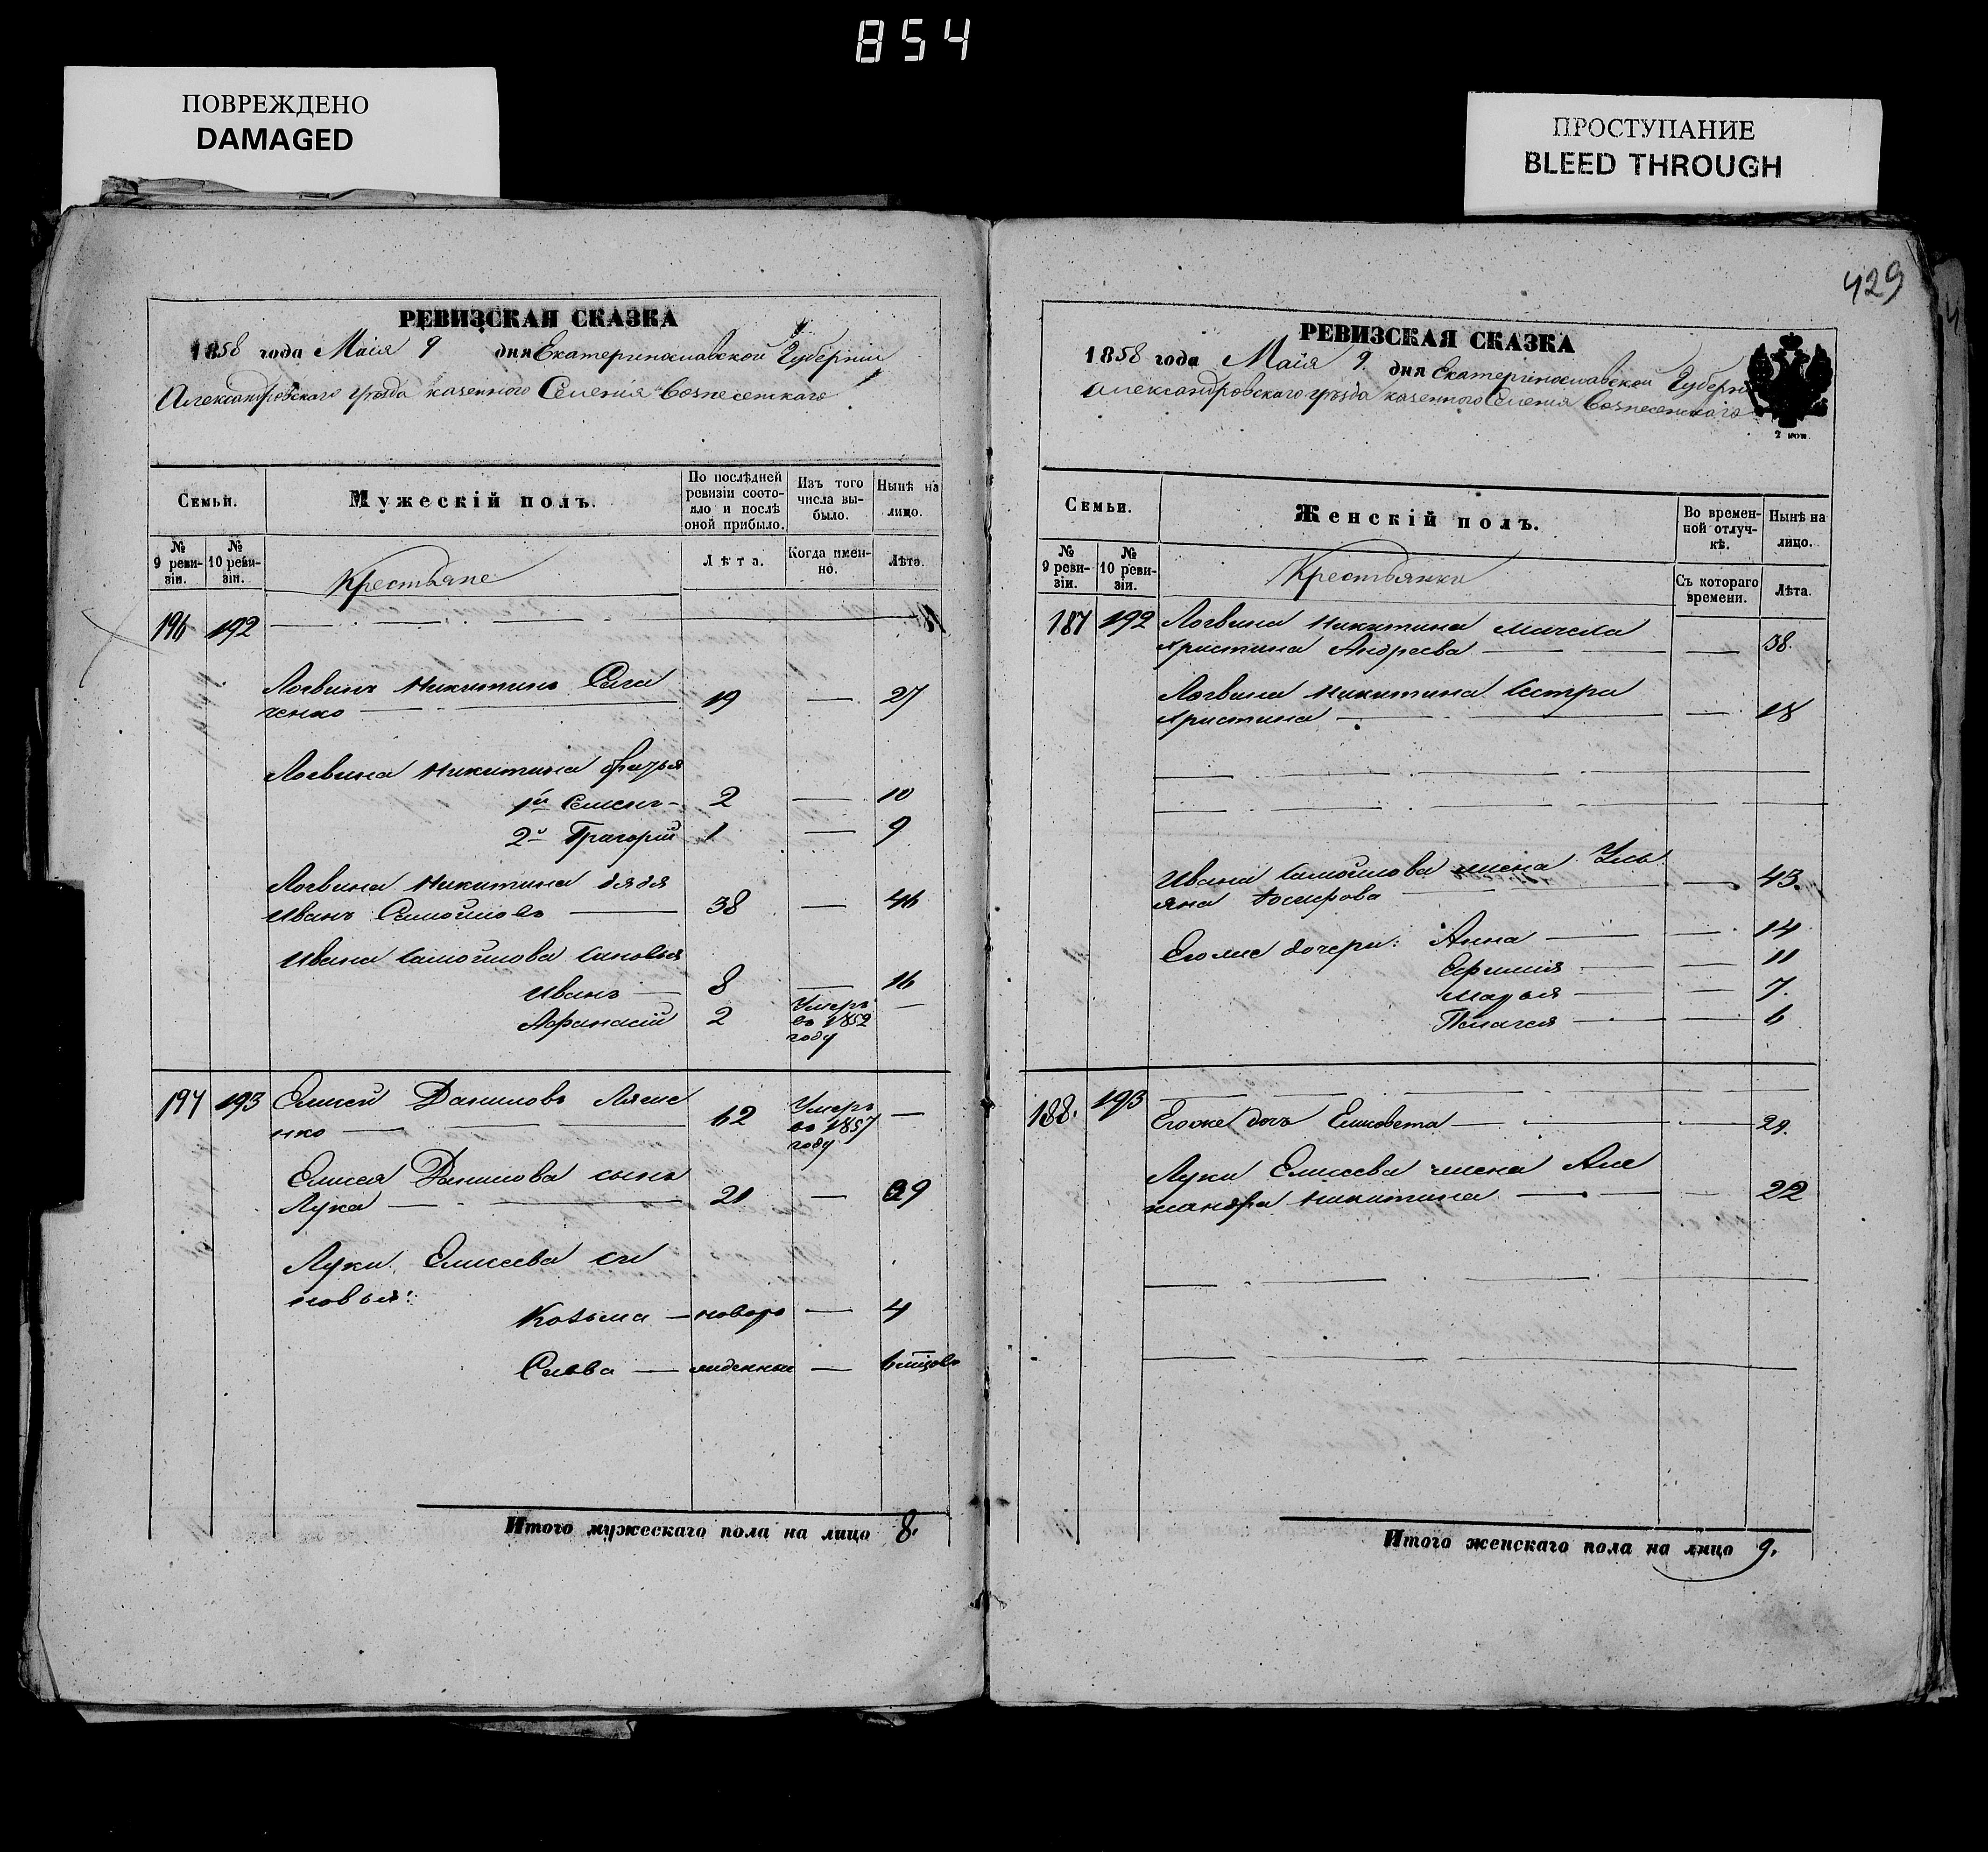 854
ПОВРЕЖДЕНО
DAMAGED
ПРОСТУПАНИЕ
BLEED THROUGH
РЕВИЗСКАЯ СКАЗКА
1858 года Маія 9 дня Екатеринославской Губерніи
Александровскаго уѣзда казеннаго Селенія Вознесенскаго
Семьи.
Мужескій полъ.
По послѣдней ревизіи состояло и послѣ оной прибыло.
Изъ того числа выбыло.
Нынѣ на лицо.
№ 9 ревизіи.
№ 10 ревизіи.
Крестьяне
Лѣта.
Когда именно.
Лѣта.
196 192
Логвинъ Никитинъ
ченко 19 — 27
Логвина Никитина братья
1й Семенъ 2 — 10
2й Григорій 1 — 9
Логвина Никитина дядя
Иванъ Самойловъ 38 — 46
Ивана Самойлова сыновья
Иванъ 8 — 16
Афанасій 2 Умеръ въ 1852 году —
197 193 Елисей Даниловъ Ляше
нко 62 Умеръ въ 1857 году —
Елисея Данилова сынъ
Лука 21 — 29
Луки Елисеева сы
новья:
Козьма — новоро — 4
Савва — жденные — 6 мѣцовъ
Итого мужескаго пола на лицо 8.
429
РЕВИЗСКАЯ СКАЗКА
1858 года Маія 9. дня Екатеринославской Губерн
Александровскаго уѣзда казеннаго Селенія Вознесенскаго
2 коп.
Семьи.
Женскій полъ.
Во временной отлучкѣ.
Нынѣ на лицо.
№ 9 ревизіи.
№ 10 ревизіи.
Крестьянки
Съ котораго времени.
Лѣта.
187 192 Логвина Никитина мачеха
Христина Андреева — 38.
Логвина Никитина сестра
Христина — 18
Ивана Самойлова жена Уль
яна — 43.
Его же дочери: Анна — 14
Ефимія — 11
Марья — 7.
Пелагея — 6
188. 193
Его же дочь Елисовета — 29.
Луки Елисеева жена Але
ксандра Никитина — 22
Итого женскаго пола на лицо 9.